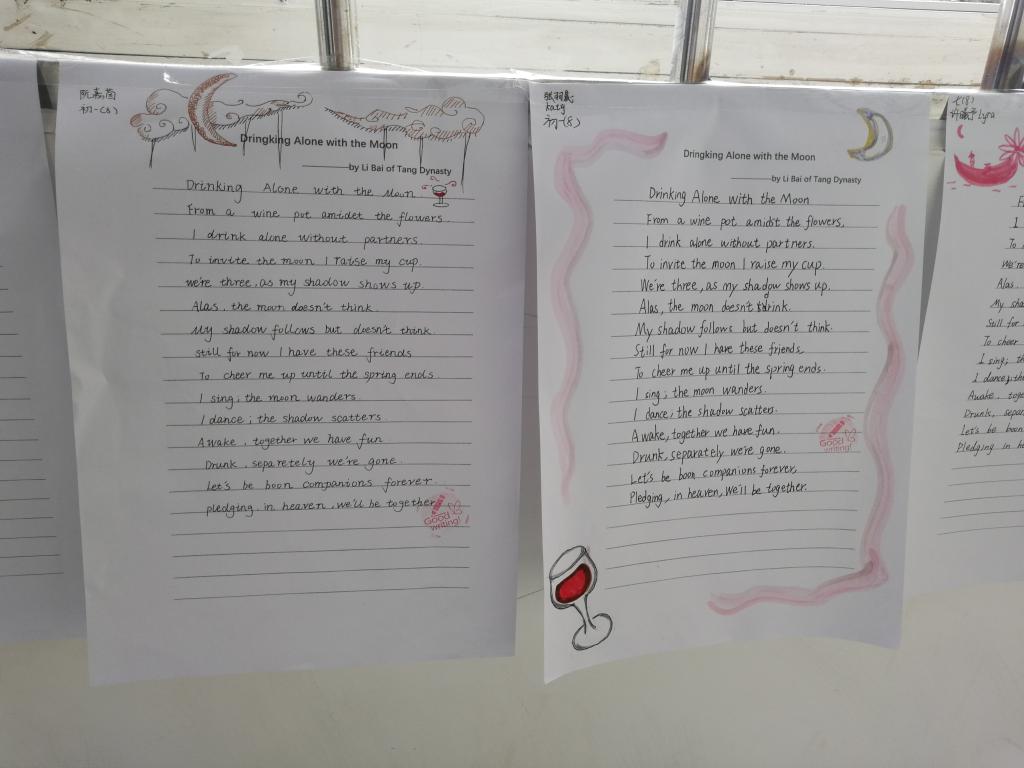 阮嘉茵
初一(8)
Dringking Alone with the Moon
———by Li Bai of Tang Dynasty
Drinking Alone with the Moon
From a wine pot amidet the flowers.
I drink alone without partners.
To invite the moon I raise my cup.
we're three, as my shadow shows up.
Alas, the moon doesn't think.
My shadow follows but doesn't think.
still for now I have these friends
To cheer me up until the spring ends.
I sing; the moon wanders.
I dance; the shadow scatters.
Awake, together we have fun
Drunk, separetely we're gone.
Let's be boon companions forever.
pledging, in heaven, we'll be together
Good writing!
Katy
初一(8)
Dringking Alone with the Moon
———by Li Bai of Tang Dynasty
Drinking Alone with the Moon
From a wine pot amidst the flowers,
I drink alone without partners.
To invite the moon I raise my cup.
We're three, as my shadow shows up.
Alas, the moon doesn't drink.
My shadow follows but doesn't think.
Still for now I have these friends,
To cheer me up until the spring ends.
I sing; the moon wanders.
I dance; the shadow scatters.
Awake, together we have fun.
Drunk, separately we're gone.
Let's be boon companions forever,
Pledging, in heaven, we'll be together.
Good writing!
七(8)
Lyra
F
I
To
We're
Alas.
My sha
Still for
To cheer
I sing; th
I dance; the
Awake, toge
Drunk, separ
Let's be boon
Pledging in h